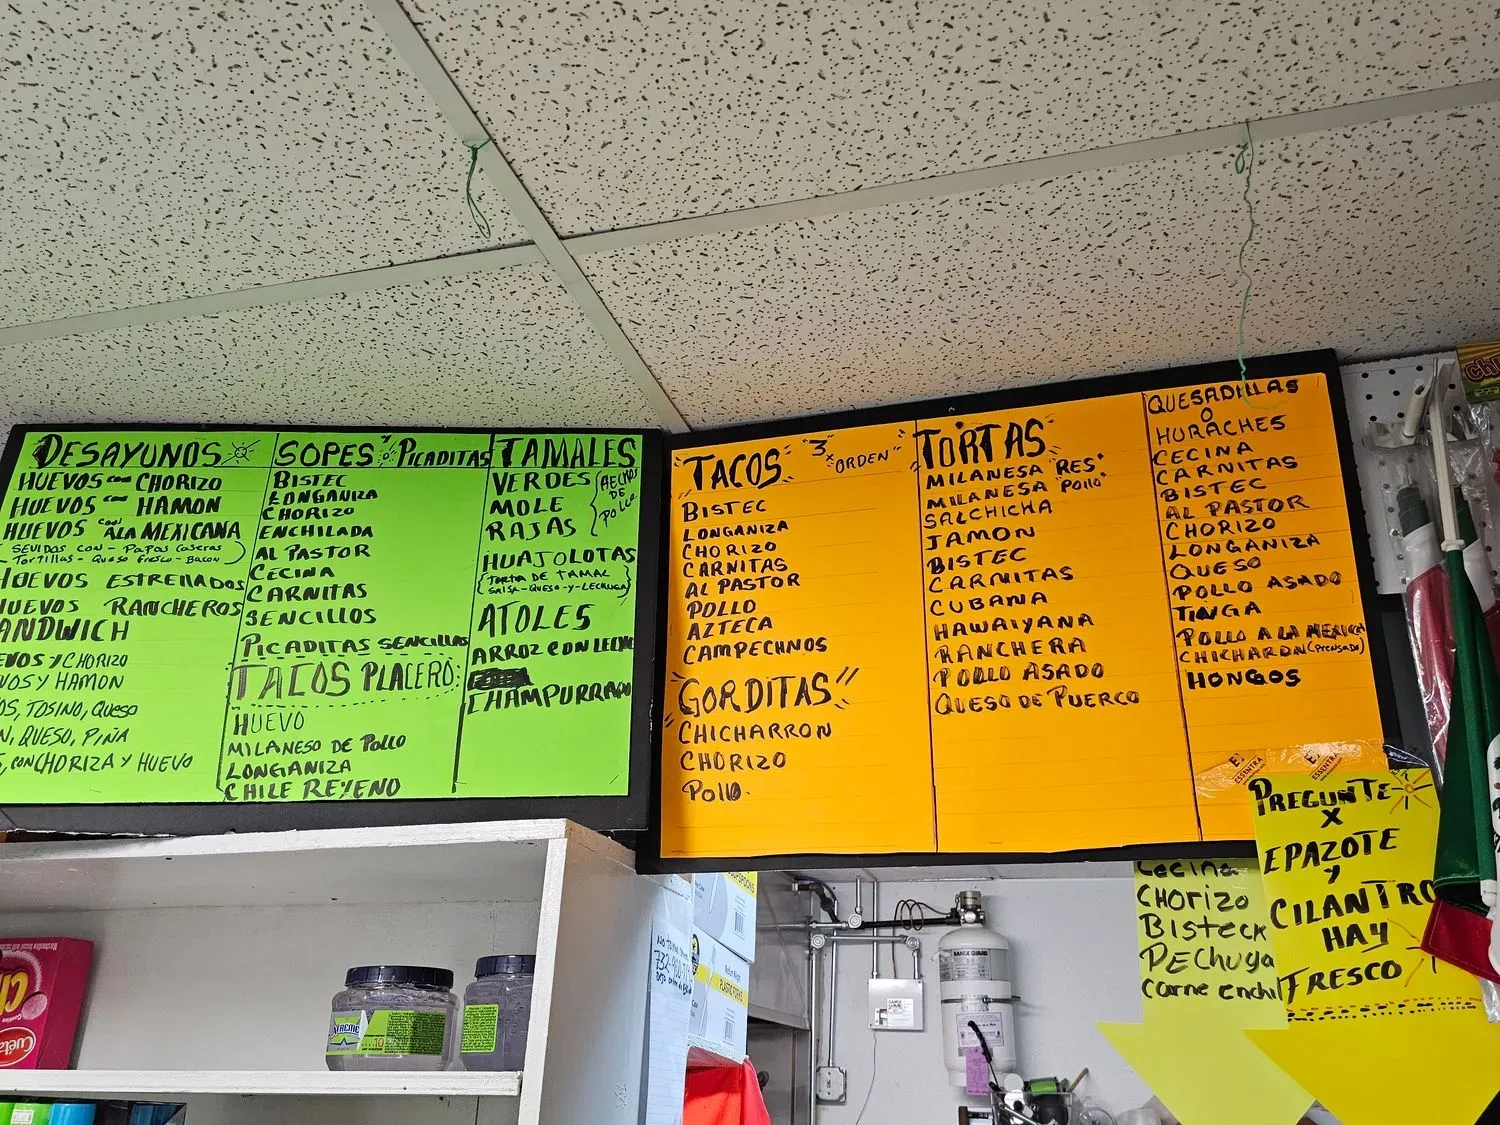 DESAYUNOS
HUEVOS con CHORIZO
HUEVOS con HAMON
HUEVOS con ALA MEXICANA
SEVIDOS CON - PAPAS Caseras
Tortillas - Queso Fresco - Bacon
HUEVOS ESTRELLADOS
HUEVOS RANCHEROS
ANDWICH
EVOS Y CHORIZO
VOS Y HAMON
OS, TOSINO, QUESO
N, QUESO, PIÑA
S, CON CHORIZA Y HUEVO
SOPES Y PICADITAS
BISTEC
LONGANIZA
CHORIZO
ENCHILADA
AL PASTOR
CECINA
CARNITAS
SENCILLOS
PICADITAS SENCILLAS
TACOS PLACERO
HUEVO
MILANESO DE POLLO
LONGANIZA
CHILE REYENO
TAMALES
VERDES
MOLE
RAJAS
HECHOS
DE
POLLO
HUAJOLOTAS
TORTA DE TAMAL
SALSA-QUESO-Y-LECHUGA
ATOLES
ARROZ CON LECHE
CHAMPURRADO
"TACOS" "3 x ORDEN"
BISTEC
LONGANIZA
CHORIZO
CARNITAS
AL PASTOR
POLLO
AZTECA
CAMPECHNOS
"GORDITAS"
CHICHARRON
CHORIZO
POLLO.
TORTAS
MILANESA "RES"
MILANESA "POLLO"
SALCHICHA
JAMON
BISTEC
CARNITAS
CUBANA
HAWAIYANA
RANCHERA
POLLO ASADO
QUESO DE PUERCO
QUESADILLAS
O
HURACHES
CECINA
CARNITAS
BISTEC
AL PASTOR
CHORIZO
LONGANIZA
QUESO
POLLO ASADO
TINGA
POLLO A LA MEXICANA
CHICHARON (PRENSADO)
HONGOS
ESSENTRA
ESSENTRA
PREGUNTE
X
EPAZOTE
Y
CILANTRO
HAY
FRESCO
Cecina
CHORIZO
BISTECK
PECHUGA
Carne enchil
XTREME
Cuéta
RANGE GUARD